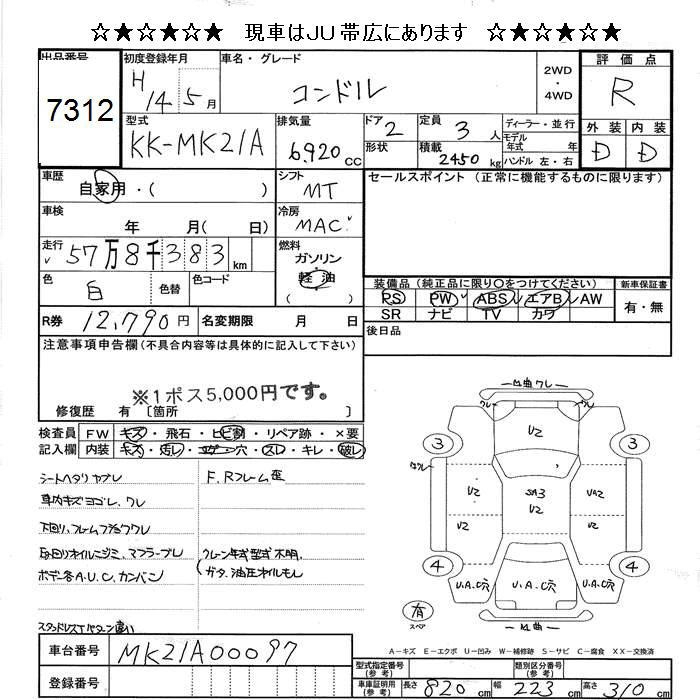 ☆★☆★☆★ 現車はJU帯広にあります ☆★☆★☆★
出品番号 7312
初度登録年月 H14年5月
車名・グレード コンドル
2WD・4WD
評価点 R
外装 D 内装 D
型式 KK-MK21A
排気量 6,920 CC
ドア 2 形状
定員 3人
積載 2450 kg
ディーラー・並行
モデル年式 年式
ハンドル 左・右
車歴 自家用・( )
シフト MT
セールスポイント (正常に機能するものに限ります)
車検 年 月( 日)
冷房 MAC
走行 57万8千383 km
燃料 ガソリン 軽油 ( )
色 白 色替 色コード
装備品 (純正品に限り○をつけてください)
PS PW ABS エアB AW
SR ナビ TV カワ
新車保証書 有・無
R券 12,790円 名変期限 月 日
後日品
注意事項申告欄 (不具合内容等は具体的に記入して下さい)
※1ポス5,000円です。
修復歴 有〔箇所 〕
検査員記入欄
FW キズ・飛石・ヒビ割・リペア跡・×要
内装 キズ・汚レ・コゲ・穴・スレ・キレ・破レ
シートヘタリ ヤブレ
F.Rフレーム歪
車内キズ ヨゴレ、ワレ
下回り、フレームフ食ワレ
E/g回りオイルニジミ、マフラーフレ
クレーン年式型式不明、
ボデー各A.U.C、カンバン
ガタ、油圧オイルもレ
スタッドレスTパターン違い
凹曲ワレ
ワレ
ワレ
U2
3
3
ワレ
U2
SA3
U2
UA2
U2
U2
4
4
U.A.C穴
U.A.C穴
U.A.C穴
凹曲
有
スペア
A-キズ E-エクボ U-凹み W-補修跡 S-サビ C-腐食 XX-交換済
車台番号 MK21A00097
登録番号
型式指定番号(参考) 類別区分番号(参考)
車車証明用(参考) 長さ 820 cm 幅 223 cm 高さ 310 cm